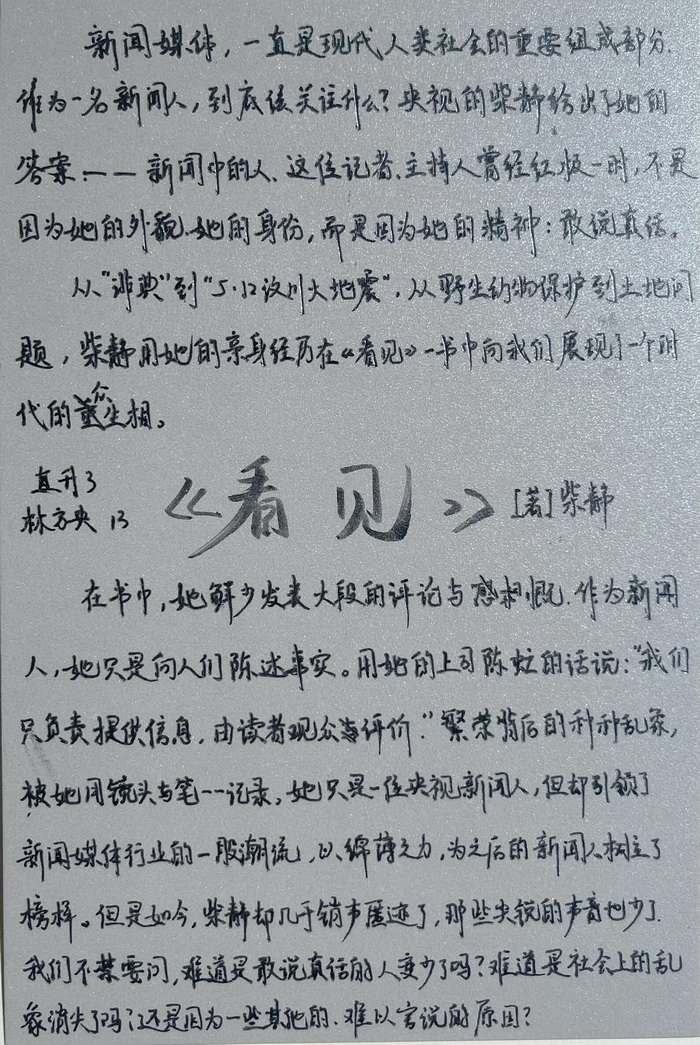 新闻媒体，一直是现代人类社会的重要组成部分.
作为一名新闻人，到底该关注什么？央视的柴静给出了她的
答案——新闻中的人.这位记者、主持人曾经红极一时，不是
因为她的外貌、她的身份，而是因为她的精神：敢说真话。
从"非典"到"5·12汶川大地震"，从野生动物保护到土地问
题，柴静用她的亲身经历在《看见》一书中向我们展现了一个时
代的众生相。
直升3
林方央 13
《看见》[著]柴静
在书中，她鲜少发表大段的评论与感慨.作为新闻
人，她只是向人们陈述事实。用她的上司陈虻的话说："我们
只负责提供信息，由读者观众评价."繁荣背后的种种乱象，
被她用镜头与笔一一记录，她只是一位央视新闻人，但却引领了
新闻媒体行业的一股潮流，以绵薄之力，为之后的新闻人树立了
榜样。但是如今，柴静却几乎销声匿迹了，那些尖锐的声音也少了.
我们不禁要问，难道是敢说真话的人变少了吗？难道是社会上的乱
象消失了吗？还是因为一些其他的、难以言说的原因？